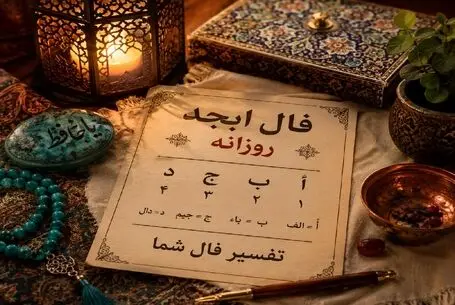 فال ابجد
روزانه
أ ب ج د
۱ ۲ ۳ ۴
أ = الف ب = باء ج = جیم د = دال
تفسیر فال شما
یا حافظ